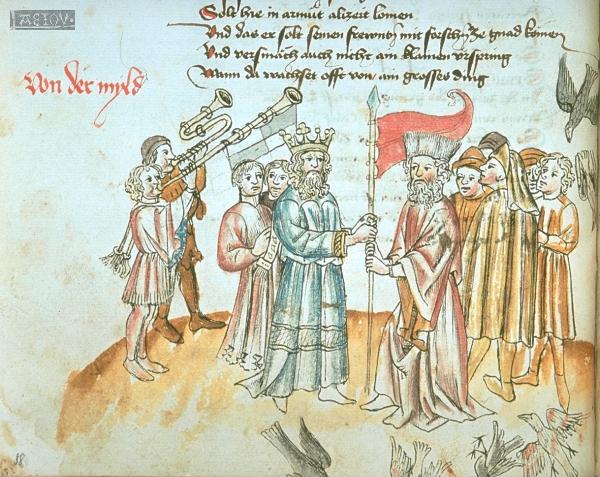 AEIOV
Solt hie in armůt alizeit komen
Vnd das er solt seinen frewntn mit forscht ze gnad komen
Vnd versmäch auch nicht ain klainen vrspring
Wann da wachset offt von ain grosses ding
Von der myld